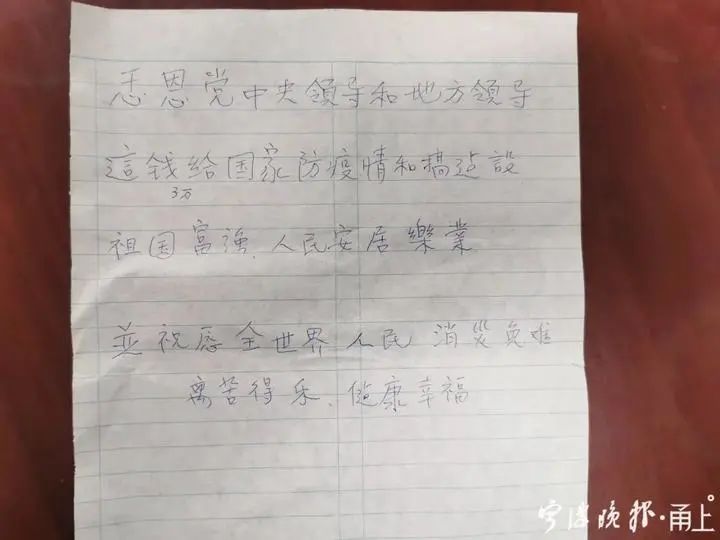 恩党中央領导和地方領导
這钱给国家防疫情和搞建設
3万
祖国富強、人民安居樂業
並祝愿全世界人民 消災免难
离苦得乐、健康幸福
宁波晚报·甬上